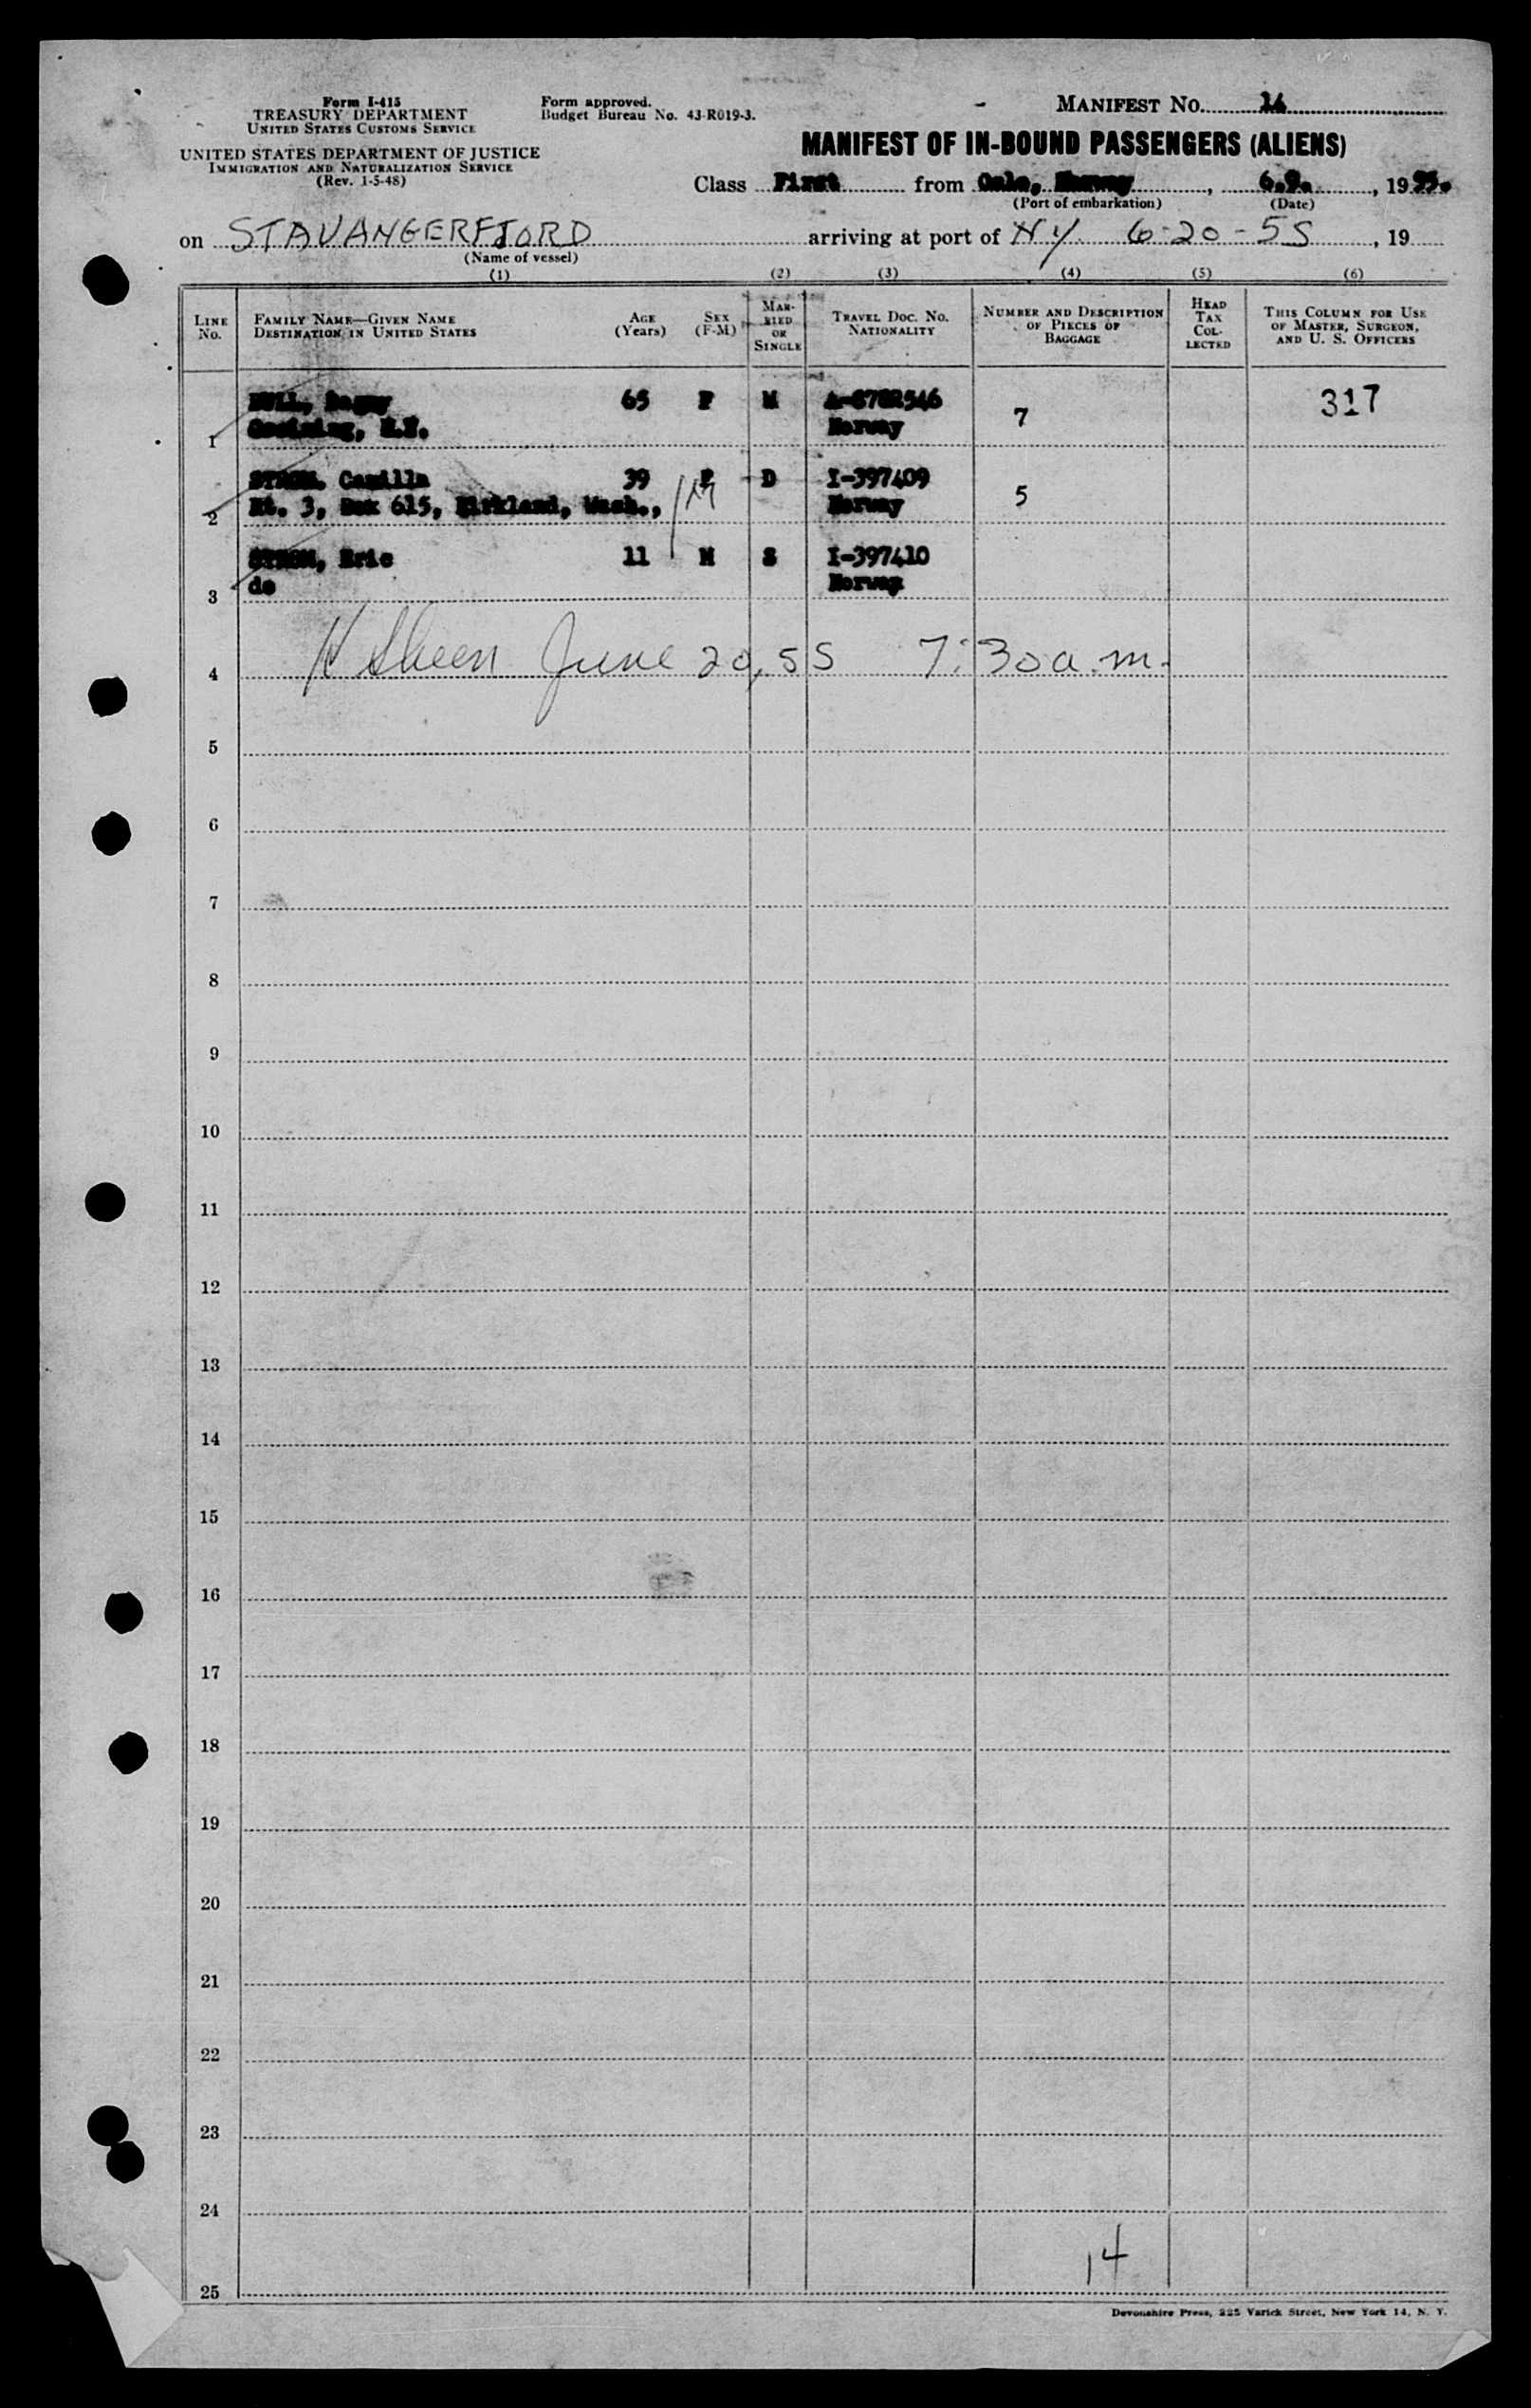 Form I-415
TREASURY DEPARTMENT
UNITED STATES CUSTOMS SERVICE
UNITED STATES DEPARTMENT OF JUSTICE
IMMIGRATION AND NATURALIZATION SERVICE
(Rev. 1-5-48)
Form approved.
Budget Bureau No. 43-R019-3.
MANIFEST NO.
MANIFEST OF IN-BOUND PASSENGERS (ALIENS)
Class First from Oslo, Norway, 6.9., 1955.
(Port of embarkation) (Date)
on STAVANGERFJORD arriving at port of NY 6-20-55, 19
(Name of vessel)
(1) (2) (3) (4) (5) (6)
LINE No.
FAMILY NAME—GIVEN NAME
DESTINATION IN UNITED STATES
AGE (Years)
SEX (F-M)
MARRIED OR SINGLE
TRAVEL DOC. NO.
NATIONALITY
NUMBER AND DESCRIPTION OF PIECES OF BAGGAGE
HEAD TAX COLLECTED
THIS COLUMN FOR USE OF MASTER, SURGEON, AND U. S. OFFICERS
65 F M 7 317
1 Norway
STROM, Camilla 39 F D I-397409
2 Rt. 3, Box 615, Kirkland, Wash., M Norway 5
STROM, Eric 11 M S I-397410
3 do Norway
4 June 20, 55 7:30 a.m.
5
6
7
8
9
10
11
12
13
14
15
16
17
18
19
20
21
22
23
24
14
25
Devonshire Press, 225 Varick Street, New York 14, N. Y.